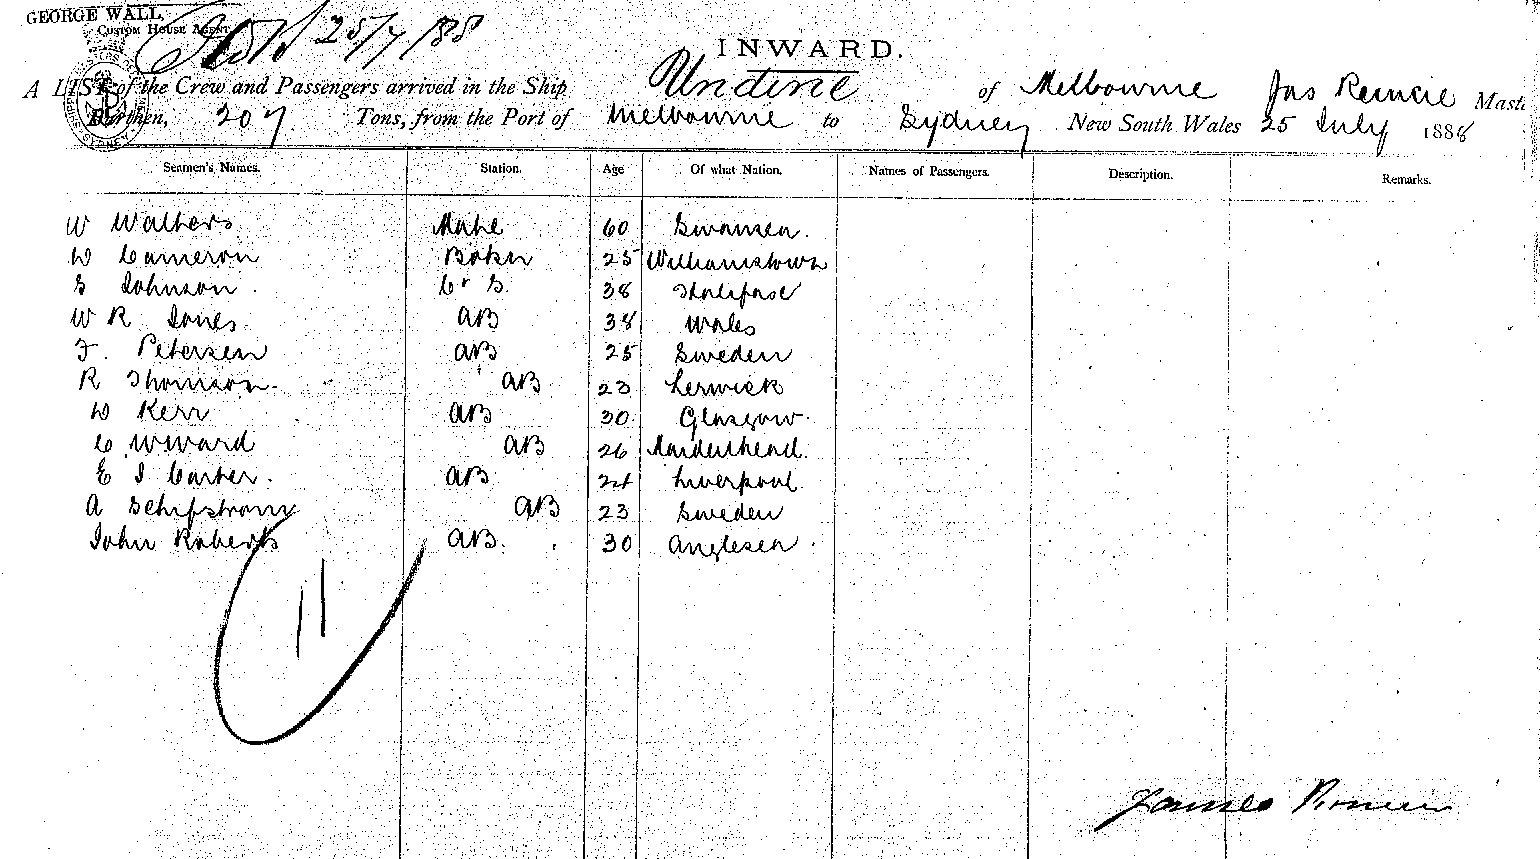 GEORGE WALL,
CUSTOM HOUSE AGENT
25/7/88
INWARD.
A LIST of the Crew and Passengers arrived in the Ship Undine of Melbourne Jas Rennie Maste
Burthen, 207 Tons, from the Port of Melbourne to Sydney New South Wales 25 July 1888
Seamen's Names. Station. Age Of what Nation. Names of Passengers. Description. Remarks.
W Walters Mate 60 Swansea.
W Cameron 25 Williamstown
S Johnson . C & S. 38
W R Jones AB 38 Wales
F. Petersen AB 25 Sweden
R Thomson. AB 23 Lerwick
W Kerr AB 30 Glasgow.
C W Ward AB 26 Maidenhead.
E J Carter. AB 24 Liverpool
A Schifstrom AB 23 Sweden
John Roberts AB. 30 Anglesea
11
James Rennie